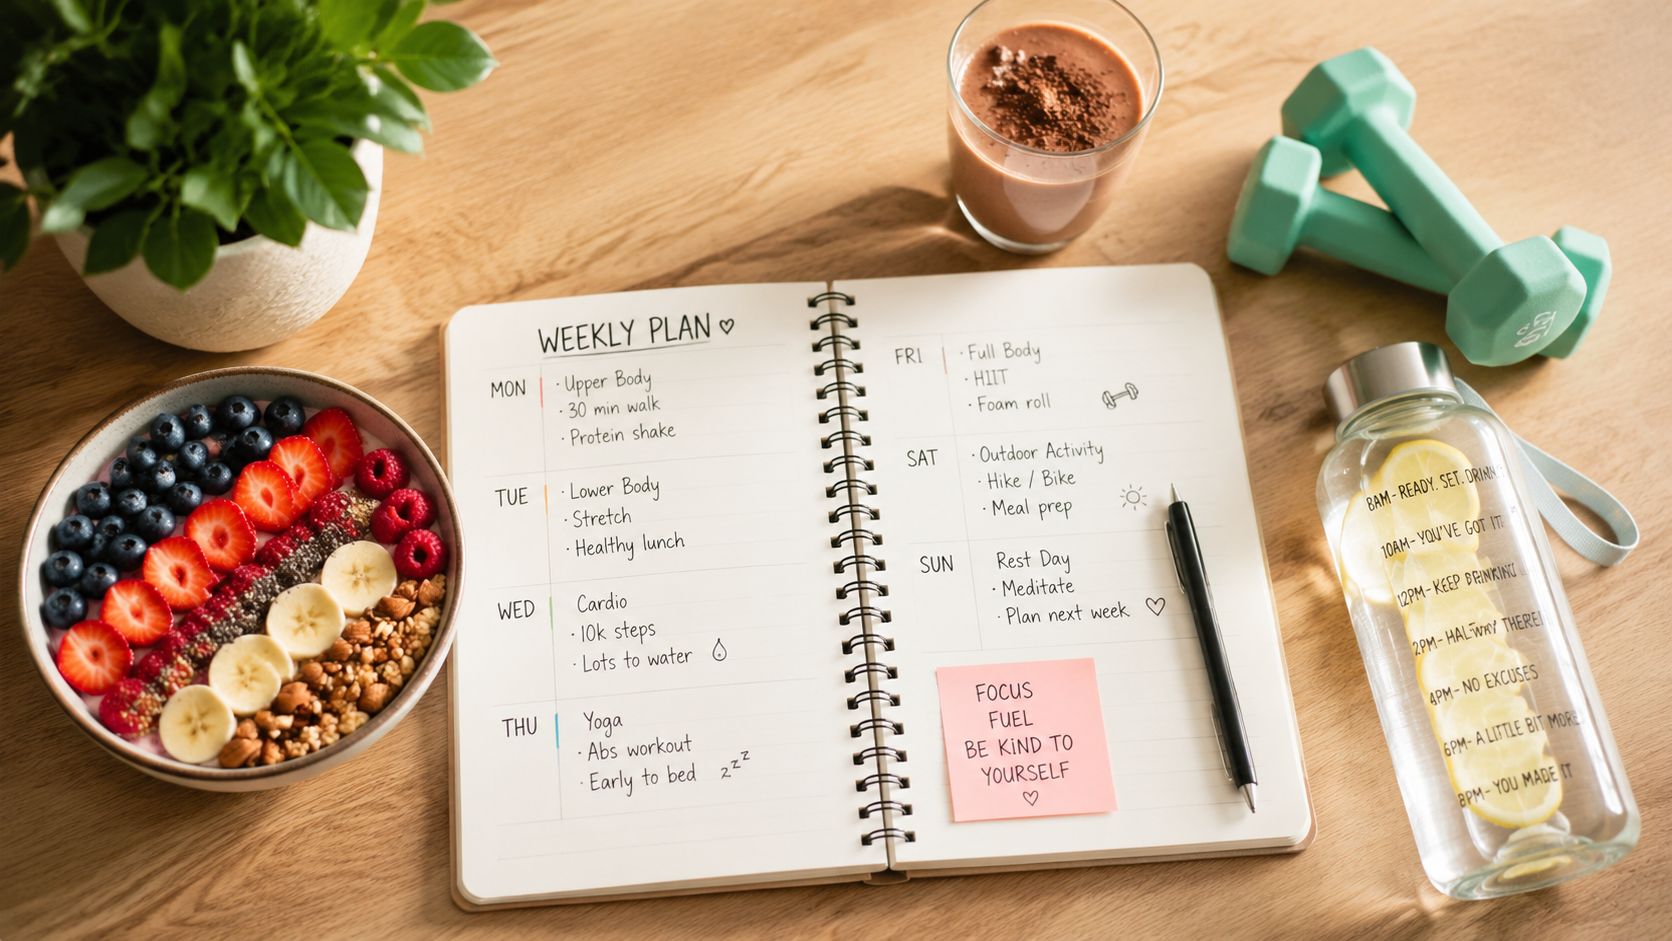 WEEKLY PLAN ♡
MON
· Upper Body
· 30 min walk
· Protein shake
TUE
· Lower Body
· Stretch
· Healthy lunch
WED
Cardio
· 10k steps
· Lots to water
THU
Yoga
· Abs workout
· Early to bed zzz
FRI
· Full Body
· HIIT
· Foam roll
SAT
· Outdoor Activity
· Hike / Bike
· Meal prep
SUN
Rest Day
· Meditate
· Plan next week ♡
FOCUS
FUEL
BE KIND TO
YOURSELF
♡
8AM - READY. SET. DRINK
10AM - YOU'VE GOT IT
12PM - KEEP DRINKING
2PM - HALFWAY THERE
4PM - NO EXCUSES
6PM - A LITTLE BIT MORE
8PM - YOU MADE IT